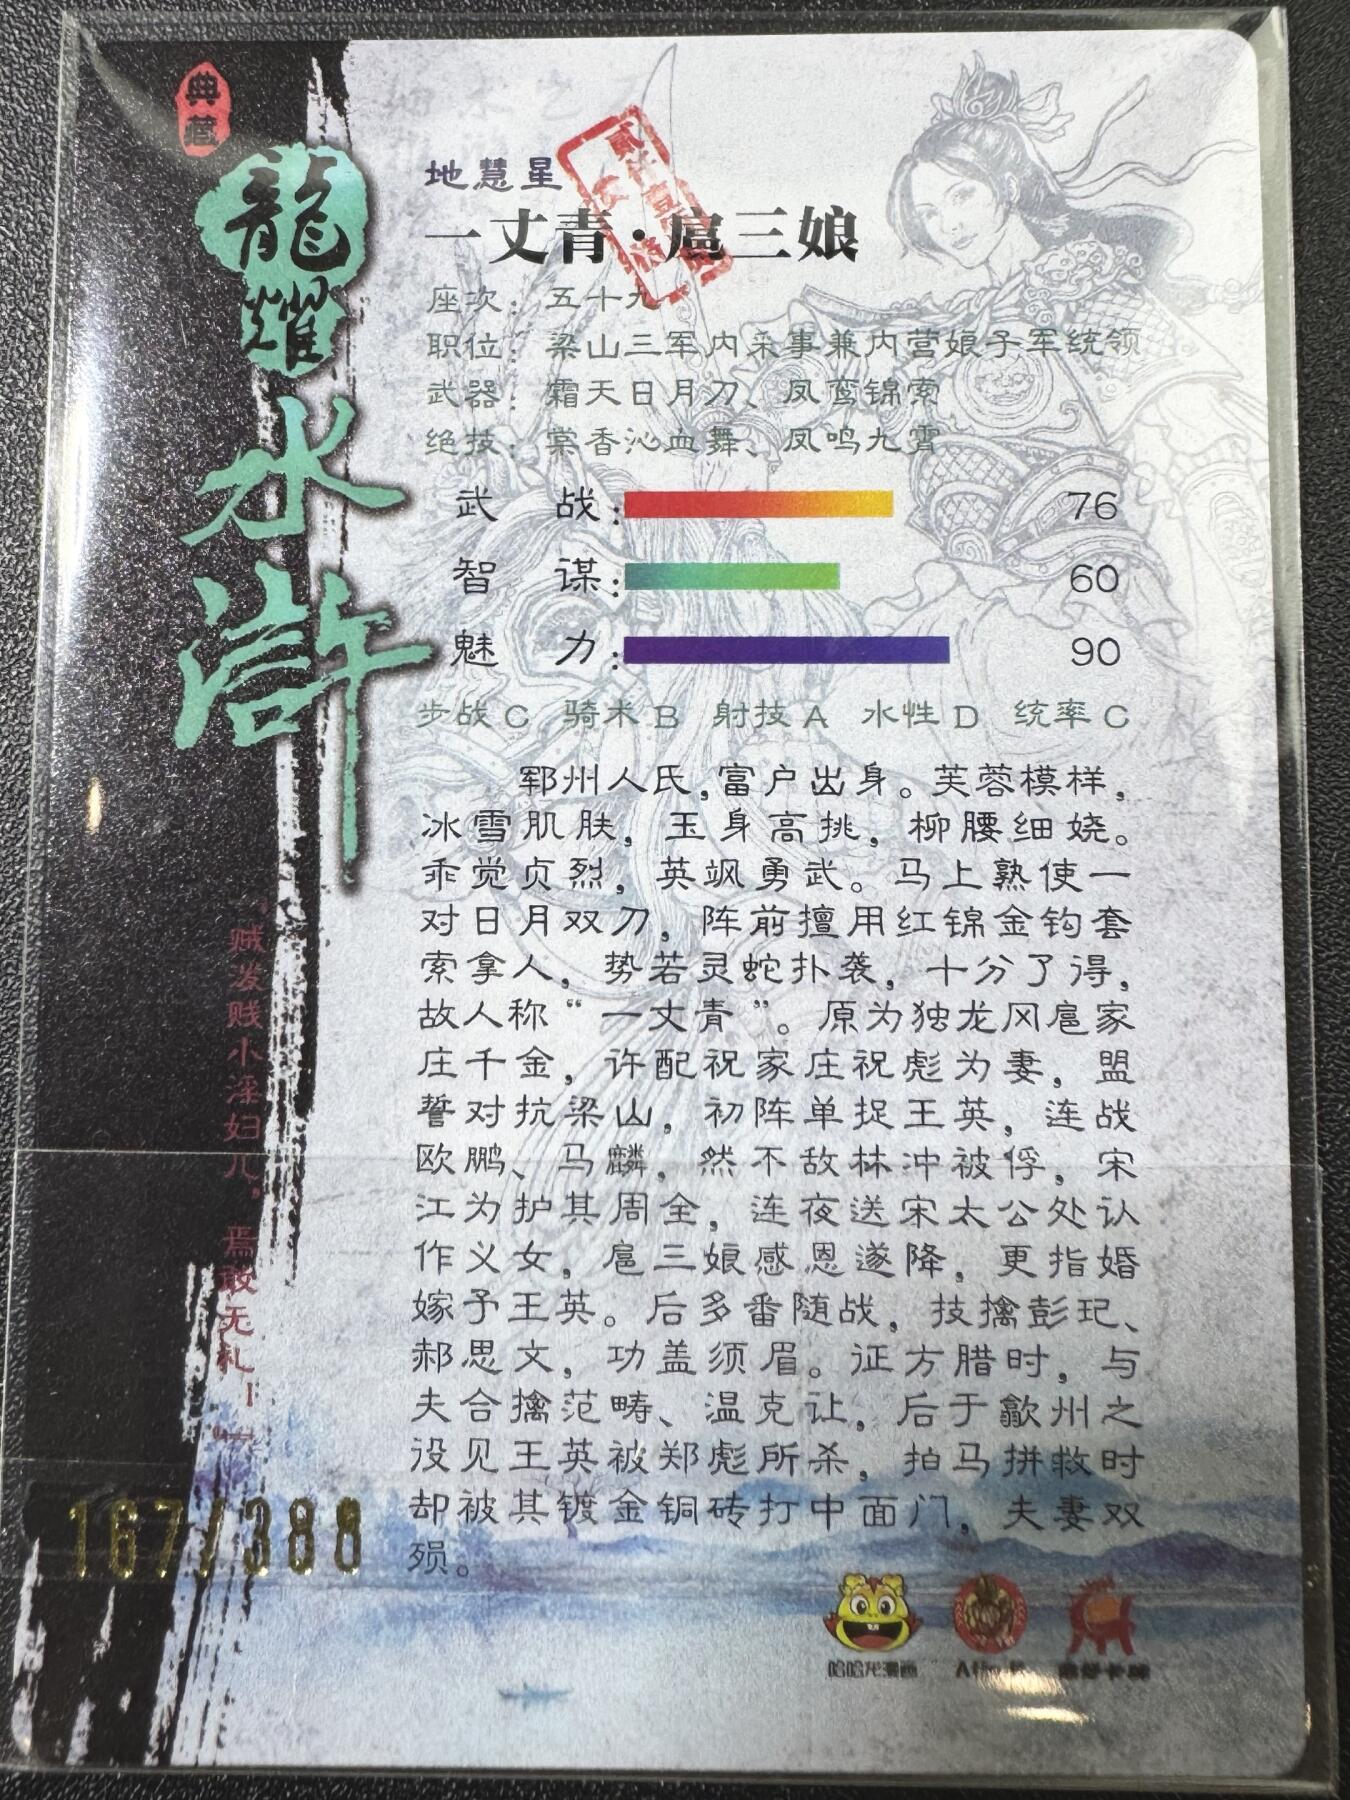 典藏
龍耀
水滸
地慧星
一丈青·扈三娘
座次：五十九
职位：梁山三军内采事兼内营娘子军统领
武器：霜天日月刀、凤鸾锦索
绝技：棠香沁血舞、凤鸣九霄
武 战：76
智 谋：60
魅 力：90
步战C 骑术B 射技A 水性D 统率C
郓州人氏，富户出身。芙蓉模样，
冰雪肌肤，玉身高挑，柳腰细娆。
乖觉贞烈，英飒勇武。马上熟使一
对日月双刀，阵前擅用红锦金钩套
索拿人，势若灵蛇扑袭，十分了得，
故人称“一丈青”。原为独龙冈扈家
庄千金，许配祝家庄祝彪为妻，盟
誓对抗梁山，初阵单捉王英，连战
欧鹏、马麟，然不敌林冲被俘，宋
江为护其周全，连夜送宋太公处认
作义女，扈三娘感恩遂降，更指婚
嫁予王英。后多番随战，技擒彭玘、
郝思文，功盖须眉。征方腊时，与
夫合擒范畴、温克让，后于歙州之
役见王英被郑彪所杀，拍马拼救时
却被其镀金铜砖打中面门，夫妻双
殒。
贼泼贱小淫妇儿，焉敢无礼！
167/388
哈哈龙漫画